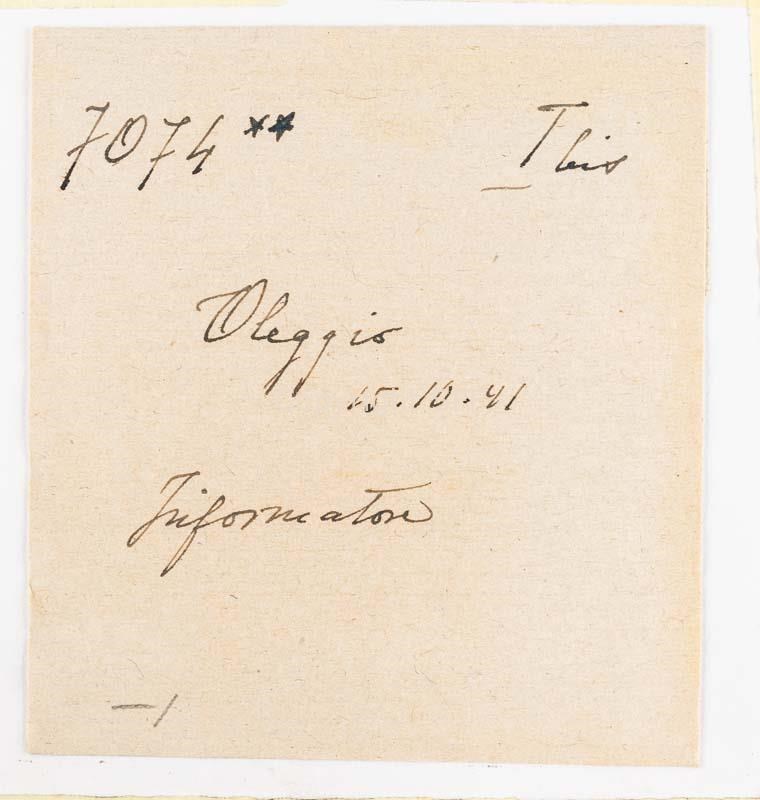 7074** I bis
Oleggio
15.10.41
Informatore
—/